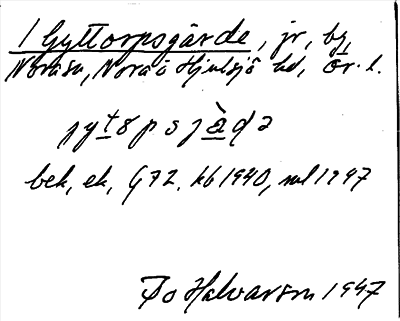 1 Gyttorpsgärde, jr, by,
Nora sn, Nora o Hjulsjö hd, Ör. l.
jytspsjàdə
bek, ek, G72, kb 1940, ml 1947
Bo Halvarson 1947